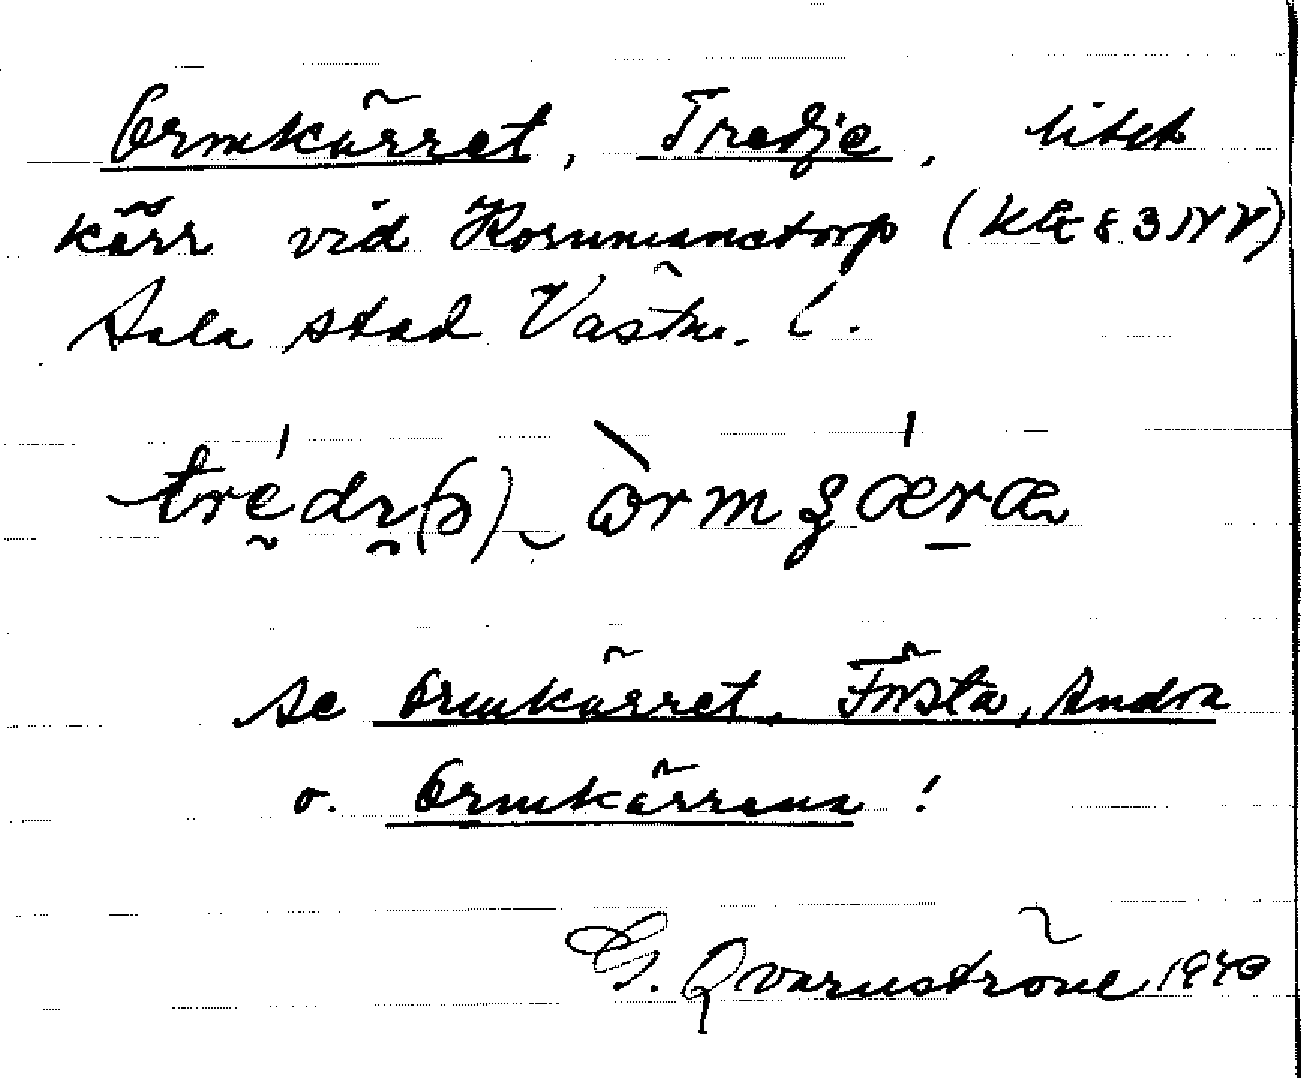 Ormkärret, Tredje, litet
kärr vid Kornmanstorp
Sala stad Västm. l.
se Ormkärret, Första, Andra
o. Ormkärrena!
G. Qvarnström 1940